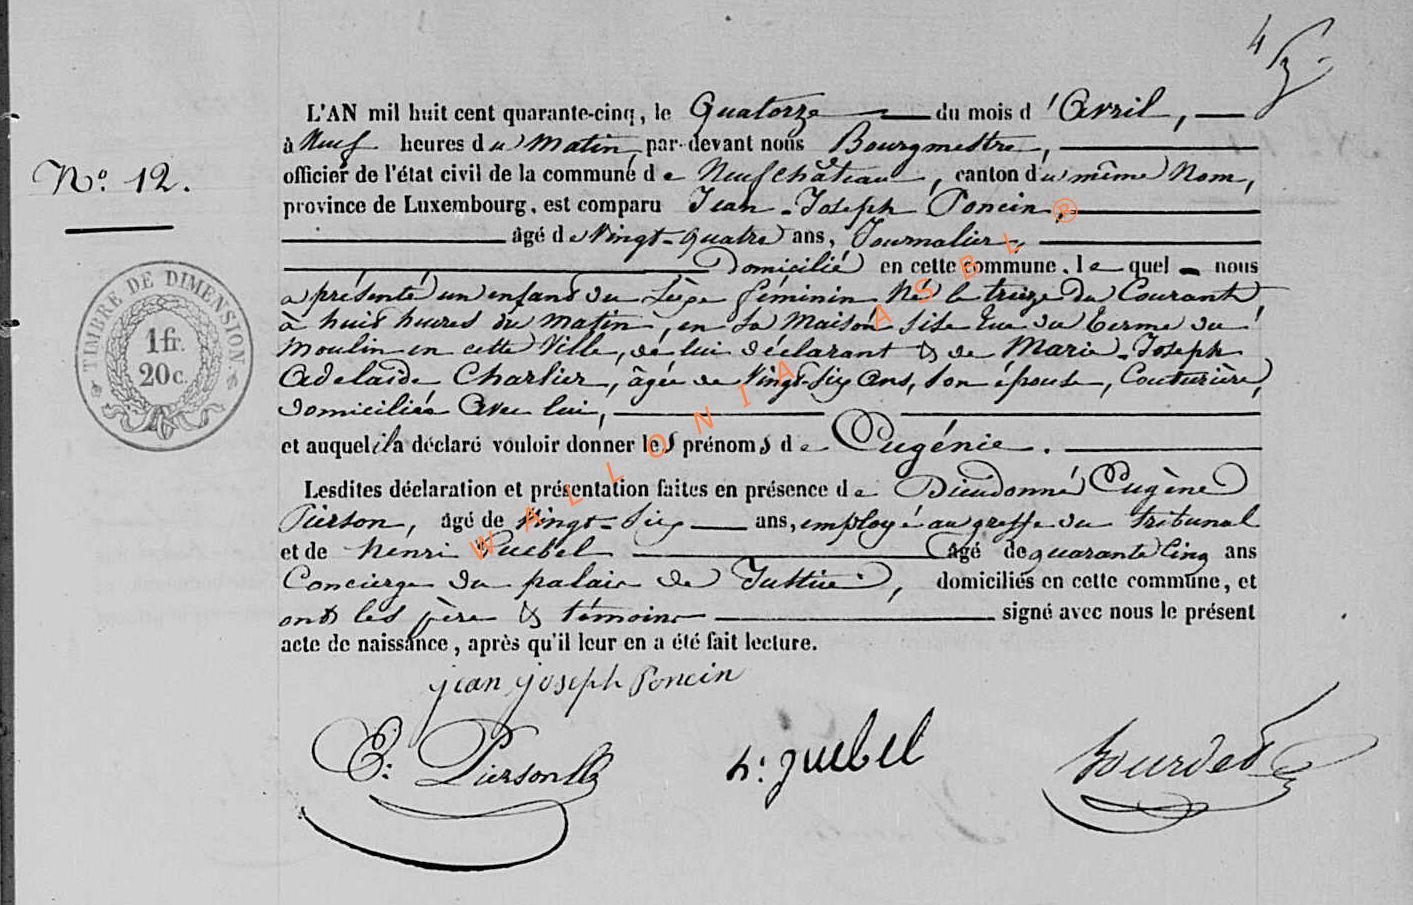 4
L'AN mil huit cent quarante-cinq, le Quatorze du mois d'Avril,
à Neuf heures du Matin, par-devant nous Bourgmestre,
N° 12.
officier de l'état civil de la commune de Neufchâteau, canton du même Nom,
province de Luxembourg, est comparu Jean-Joseph Poncin,
âgé de Vingt-quatre ans, Journalier,
Domicilié en cette commune, lequel nous
a présenté un enfant du sèxe féminin Né le treize du Courant
à huit heures du matin, en sa Maison sise Rue du Terme du
Moulin en cette Ville, de lui déclarant & de Marie-Joseph
Adelaïde Charlier, âgée de Vingt-six Ans, son épouse, Couturière,
domiciliée Avec lui,
et auquel il a déclaré vouloir donner les prénoms de Eugénie.
Lesdites déclaration et présentation faites en présence de Dieudonné Eugène
Pierson, âgé de Vingt-Six ans, employé au greffe du tribunal
et de Henri Guebel âgé de quarante Cinq ans
Concierge du palais de Justice, domiciliés en cette commune, et
ont les père & témoins signé avec nous le présent
acte de naissance, après qu'il leur en a été fait lecture.
TIMBRE DE DIMENSION
1 fr.
20 c.
jean joseph Poncin
E. Pierson
h: guebel
Bourdet
WALLONIA ASBL ®